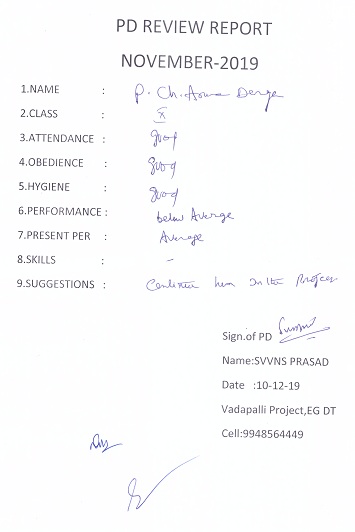 PD REVIEW REPORT
NOVEMBER-2019
1.NAME : P. Ch. Durga
2.CLASS : X
3.ATTENDANCE : good
4.OBEDIENCE : good
5.HYGIENE : good
6.PERFORMANCE : below Average
7.PRESENT PER : Average
8.SKILLS : -
9.SUGGESTIONS : Continue him In the Project
Sign.of PD
Name:SVVNS PRASAD
Date :10-12-19
Vadapalli Project,EG DT
Cell:9948564449